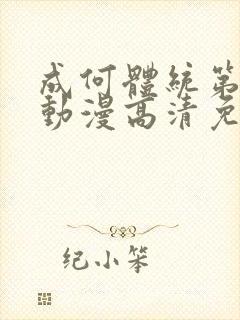 成何體統第
動漫高清免
纪小笨